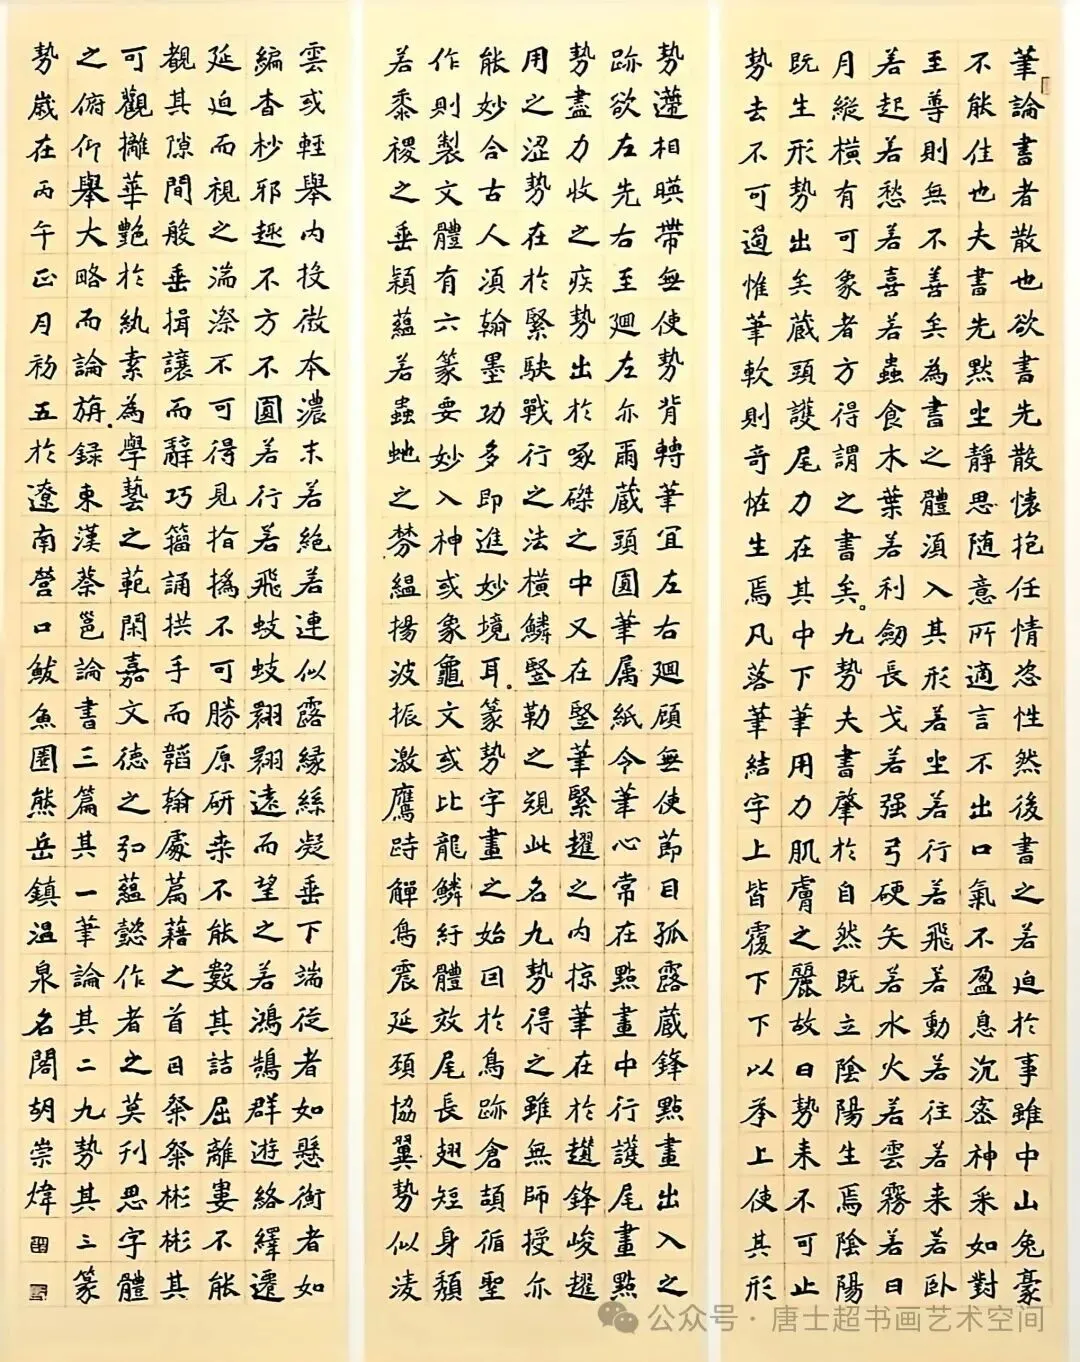 筆論書者散也欲書先散懷抱任情恣性然後書之若迫於事雖中山兔豪
不能佳也夫書先默坐靜思随意所適言不出口氣不盈息沉密神采如對
至尊則無不善矣為書之體須入其形若坐若行若飛若動若往若来若卧
若起若愁若喜若蟲食木葉若利劒長戈若强弓硬矢若水火若雲霧若日
月縱橫有可象者方得謂之書矣。九勢夫書肇於自然既立陰陽生焉陰陽
既生形勢出矣蔵頭護尾力在其中下筆用力肌膚之麗故曰勢来不可止
勢去不可遏惟筆軟則奇恠生焉凡落筆結字上皆覆下下以承上使其形
勢遞相暎帶無使勢背轉筆宜左右廻顧無使莭目孤露蔵鋒點畫出入之
跡欲左先右至廻左亦爾蔵頭圓筆属紙令筆心常在點畫中行護尾畫點
勢盡力收之疾勢出於啄磔之中又在竪筆緊趯之内掠筆在於趲鋒峻趯
用之涩勢在於緊駃戰行之法横鱗竪勒之䂓此名九勢得之雖無師授亦
能妙合古人須翰墨功多即進妙境耳.篆勢字畫之始因於鳥跡倉頡循聖
作則製文體有六篆要妙入神或象龜文或比龍鱗紆體效尾長翅短身頹
若黍稷之垂穎蘊若蟲虵之棼緼揚波振激鷹跱觧鳥震延頚協翼勢似淩
雲或輕舉内投微本濃末若絶若連似露緣絲凝垂下端從者如懸衡者如
編杳杪邪趣不方不圓若行若飛蚑蚑翾翾遠而望之若鴻鵠群遊絡繹遷
延迫而視之湍漈不可得見指撝不可勝原研桒不能數其詰屈離婁不能
覩其隙間般垂揖讓而辭巧籀誦拱手而韜翰處篇藉之首目粲粲彬彬其
可觀摛華艷於紈素為學藝之範閑嘉文德之弘蘊懿作者之莫刊思字體
之俯仰舉大略而論旃.録東漢蔡邕論書三篇其一筆論其二九勢其三篆
勢歲在丙午正月初五於遼南營口鲅魚圈熊岳鎮温泉名閣胡崇煒
公众号·唐士超书画艺术空间